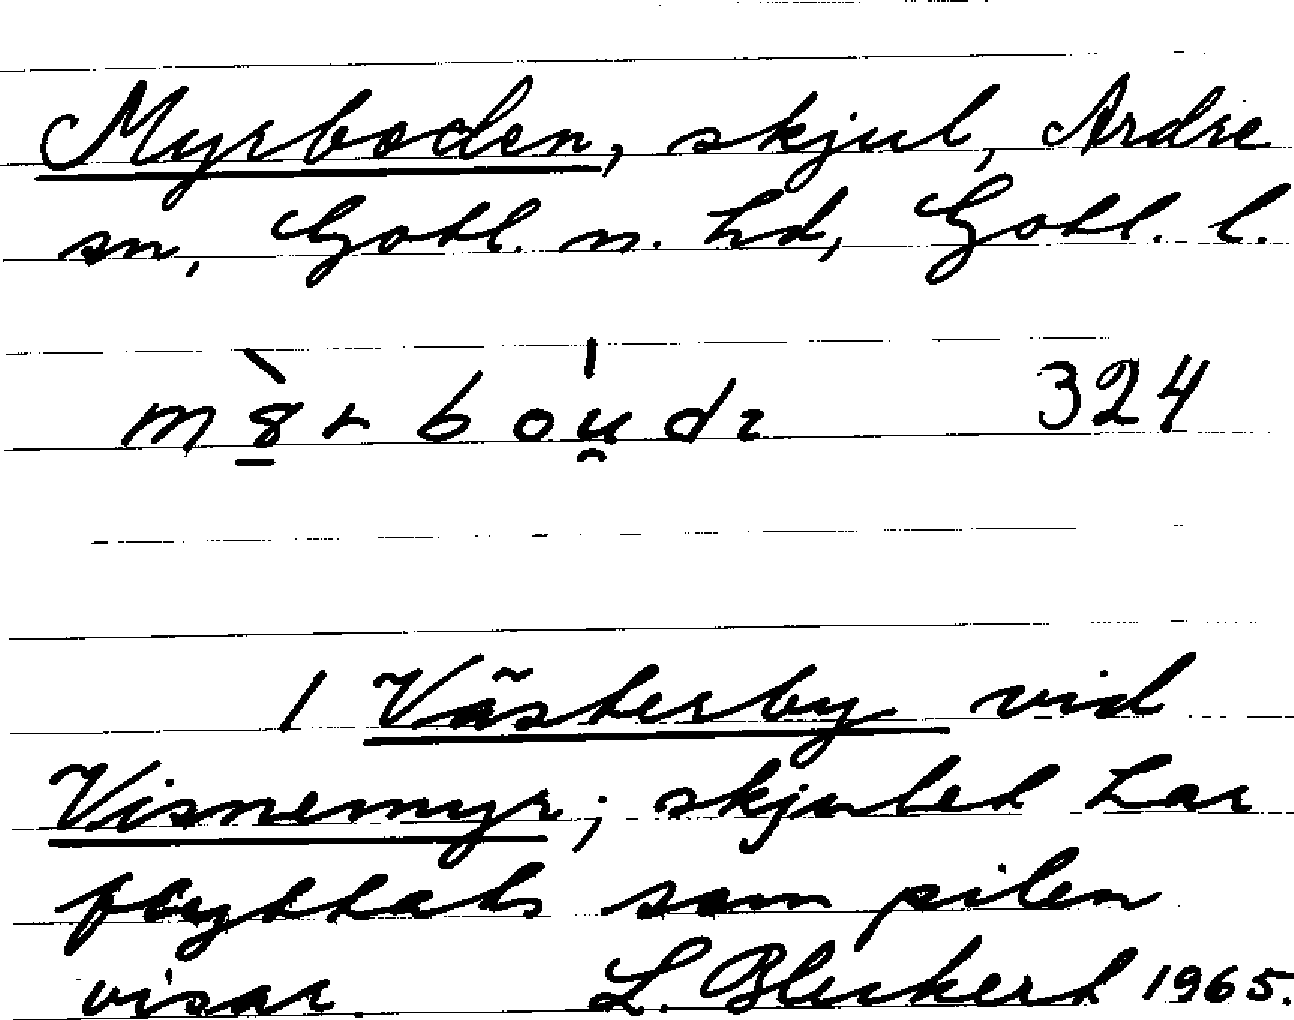 Myrboden, skjul, Ardre
sn, Gotl. n. hd, Gotl. l.
324
I Västerby vid
Visnemyr; skjulet har
flyttats som pilen
visar. L. Bleckert 1965.